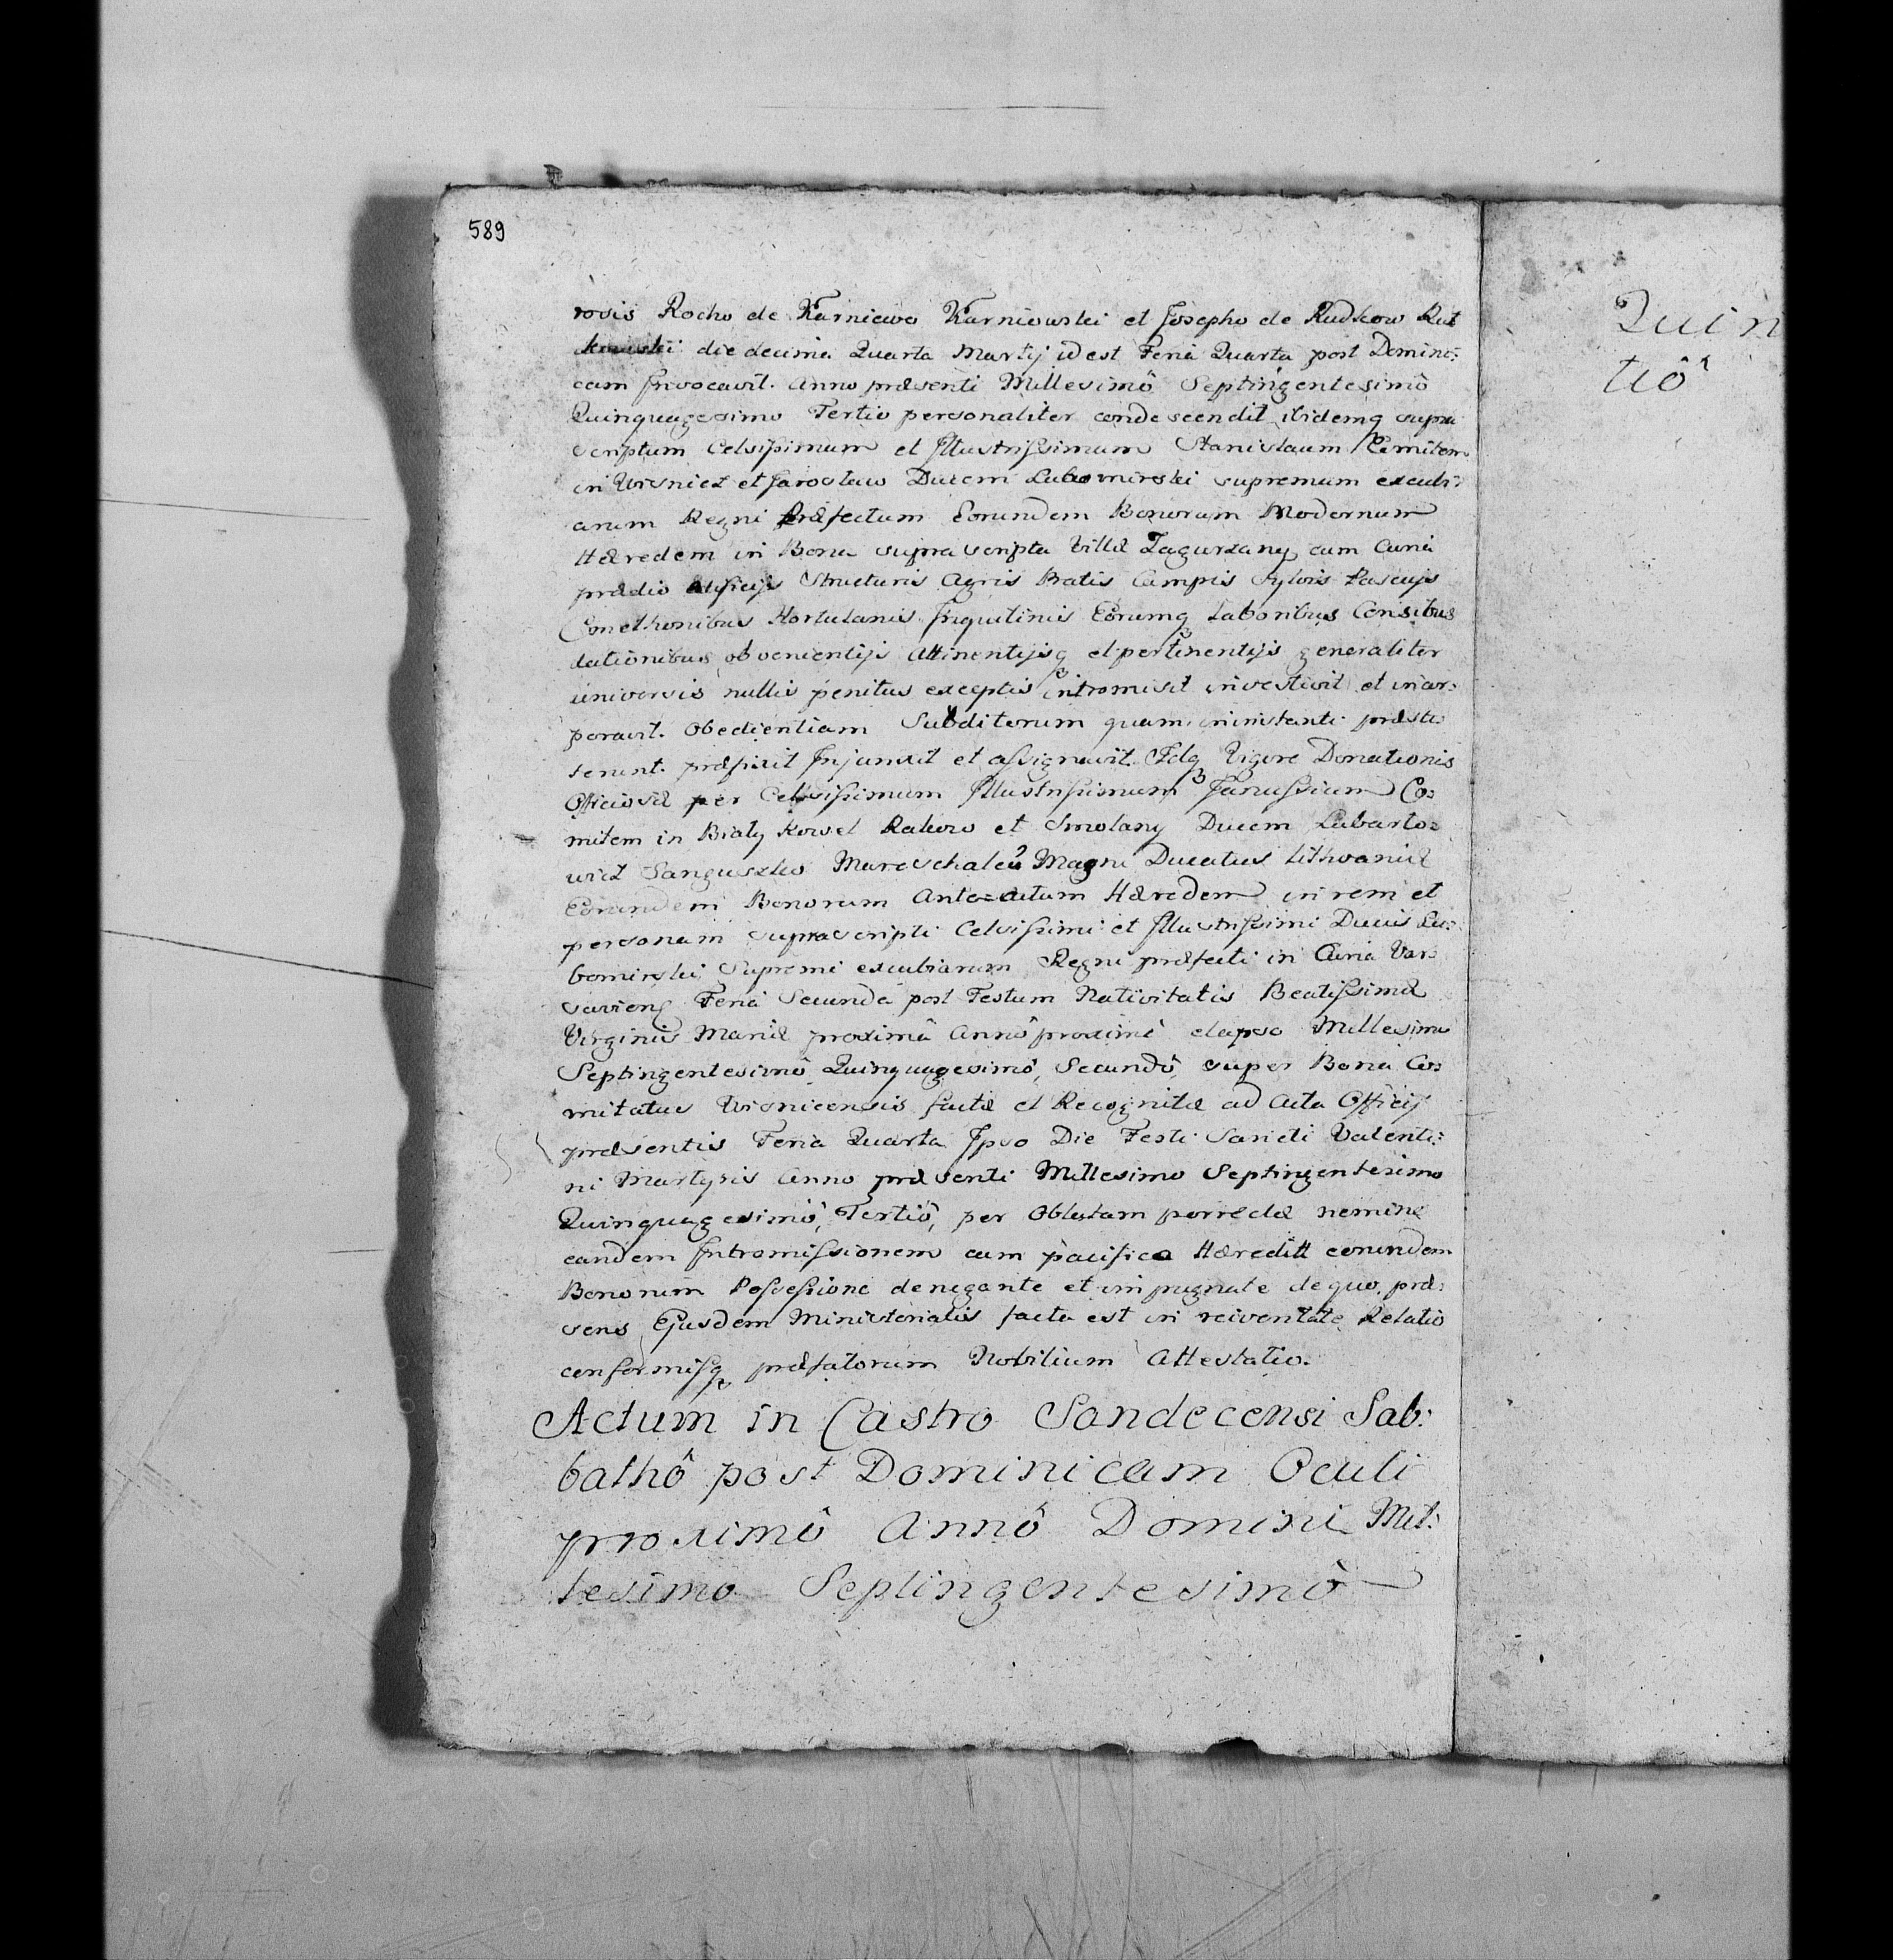 589
rosis Rocho de Karniewo Karniowski et Josepho de Rudkow Rut
kowski die decima Quarta Martij id est Feria Quarta post Domini:
cam Invocavit. Anno præsenti Millesimô Septingentesimô
Quinquagesimo Tertio personaliter condescendit ibidemq supra
scriptum Celsissimum et Illustrissimum Stanislaum Comitem
in Wisnicz et Jaroslaw Ducem Lubomirski supremum excubi:
arum Regni Præfectum Eorundem Bonorum Modernum
Hæredem in Bona supra scripta Villæ Zagurzany cum Curia
prædio ædificijs Structuris Agris Pratis Campis Sylvis Pascuis
Cmethonibus Hortulanis Inquilinis Eorumq Laboribus Censibus
dationibus obvenientijs Attinentijsq et pertinentijs generaliter
universis nullis penitus exceptis intromisit investivit et incor:
poravit. Obedientiam Subditorum quam in instanti præsti:
terunt. præfixit Injunxit et assignavit. Idq Vigore Donationis
Officiosæ per Celsissimum Illustrissimum Janussium Co:
mitem in Bialy Kowel Rakow et Smolany Ducem Lubarto:
wicz Sanguszko Mareschalcû Magni Ducatus Lithvaniæ
Eorundem Bonorum Ante=actum Hæredem in rem et
personam suprascripti Celsissimi et Illustrissimi Ducis Lu:
bomirski Supremi excubiarum Regni præfecti in Curia Var:
saviens Feria Secunda post Festum Nativitatis Beatissimæ
Virginis Mariæ proximâ Annô proximè elapso Millesimo
Septingentesimô Quinquagesimô Secundô super Bona Co:
mitatus Wisnicensis factæ et Recognitæ ad Acta Officij
præsentis Feria Quarta Ipso Die Festi Sancti Valenti:
ni Martyris Anno præsenti Millesimo Septingentesimo
Quinquagesimô Tertiô per Oblatam porrectæ nemine
eandem Intromissionem cum pacifica Hæreditt eorundem
Bonorum Possessione denegante et impugnate de quo præ:
sens Ejusdem Ministerialis facta est in rei veritate Relatio
conformisq præfatorum Nobilium Attestatio.
Actum in Castro Sandecensi Sab:
bathô post Dominicam Oculi
proximô Annô Domini Mil:
lesimo Septingentesimô
Quin
tiô